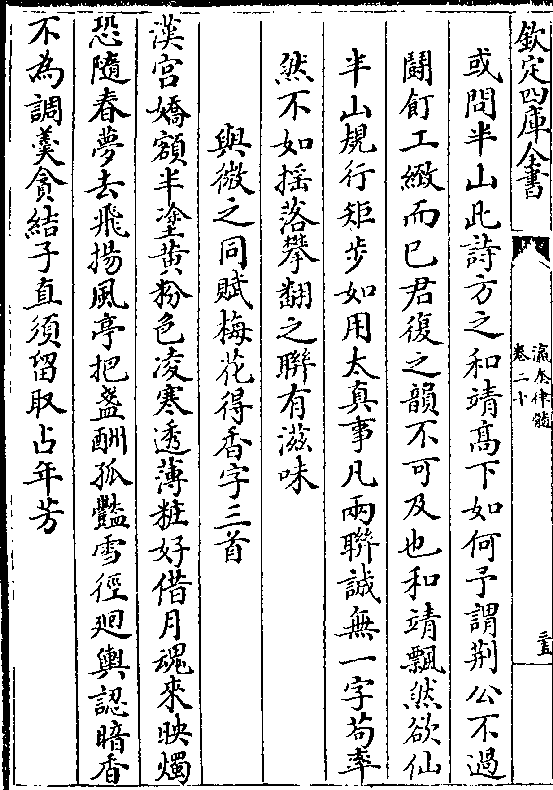 欽定四庫全書
瀛奎律髓
卷二十
三五
或問半山此詩方之和靖髙下如何予謂荆公不過
鬭飣工緻而已君復之韻不可及也和靖飄然欲仙
半山規行矩步如用太真事凡兩聯誠無一字茍率
然不如揺落攀翻之聯有滋味
與微之同賦梅花得香字三首
漢宫嬌額半塗黄粉色凌寒透薄粧好借月魂來映燭
恐隨春夢去飛揚風亭把盞酬孤豔雪徑廻輿認暗香
不為調羮貪結子直須留取占年芳